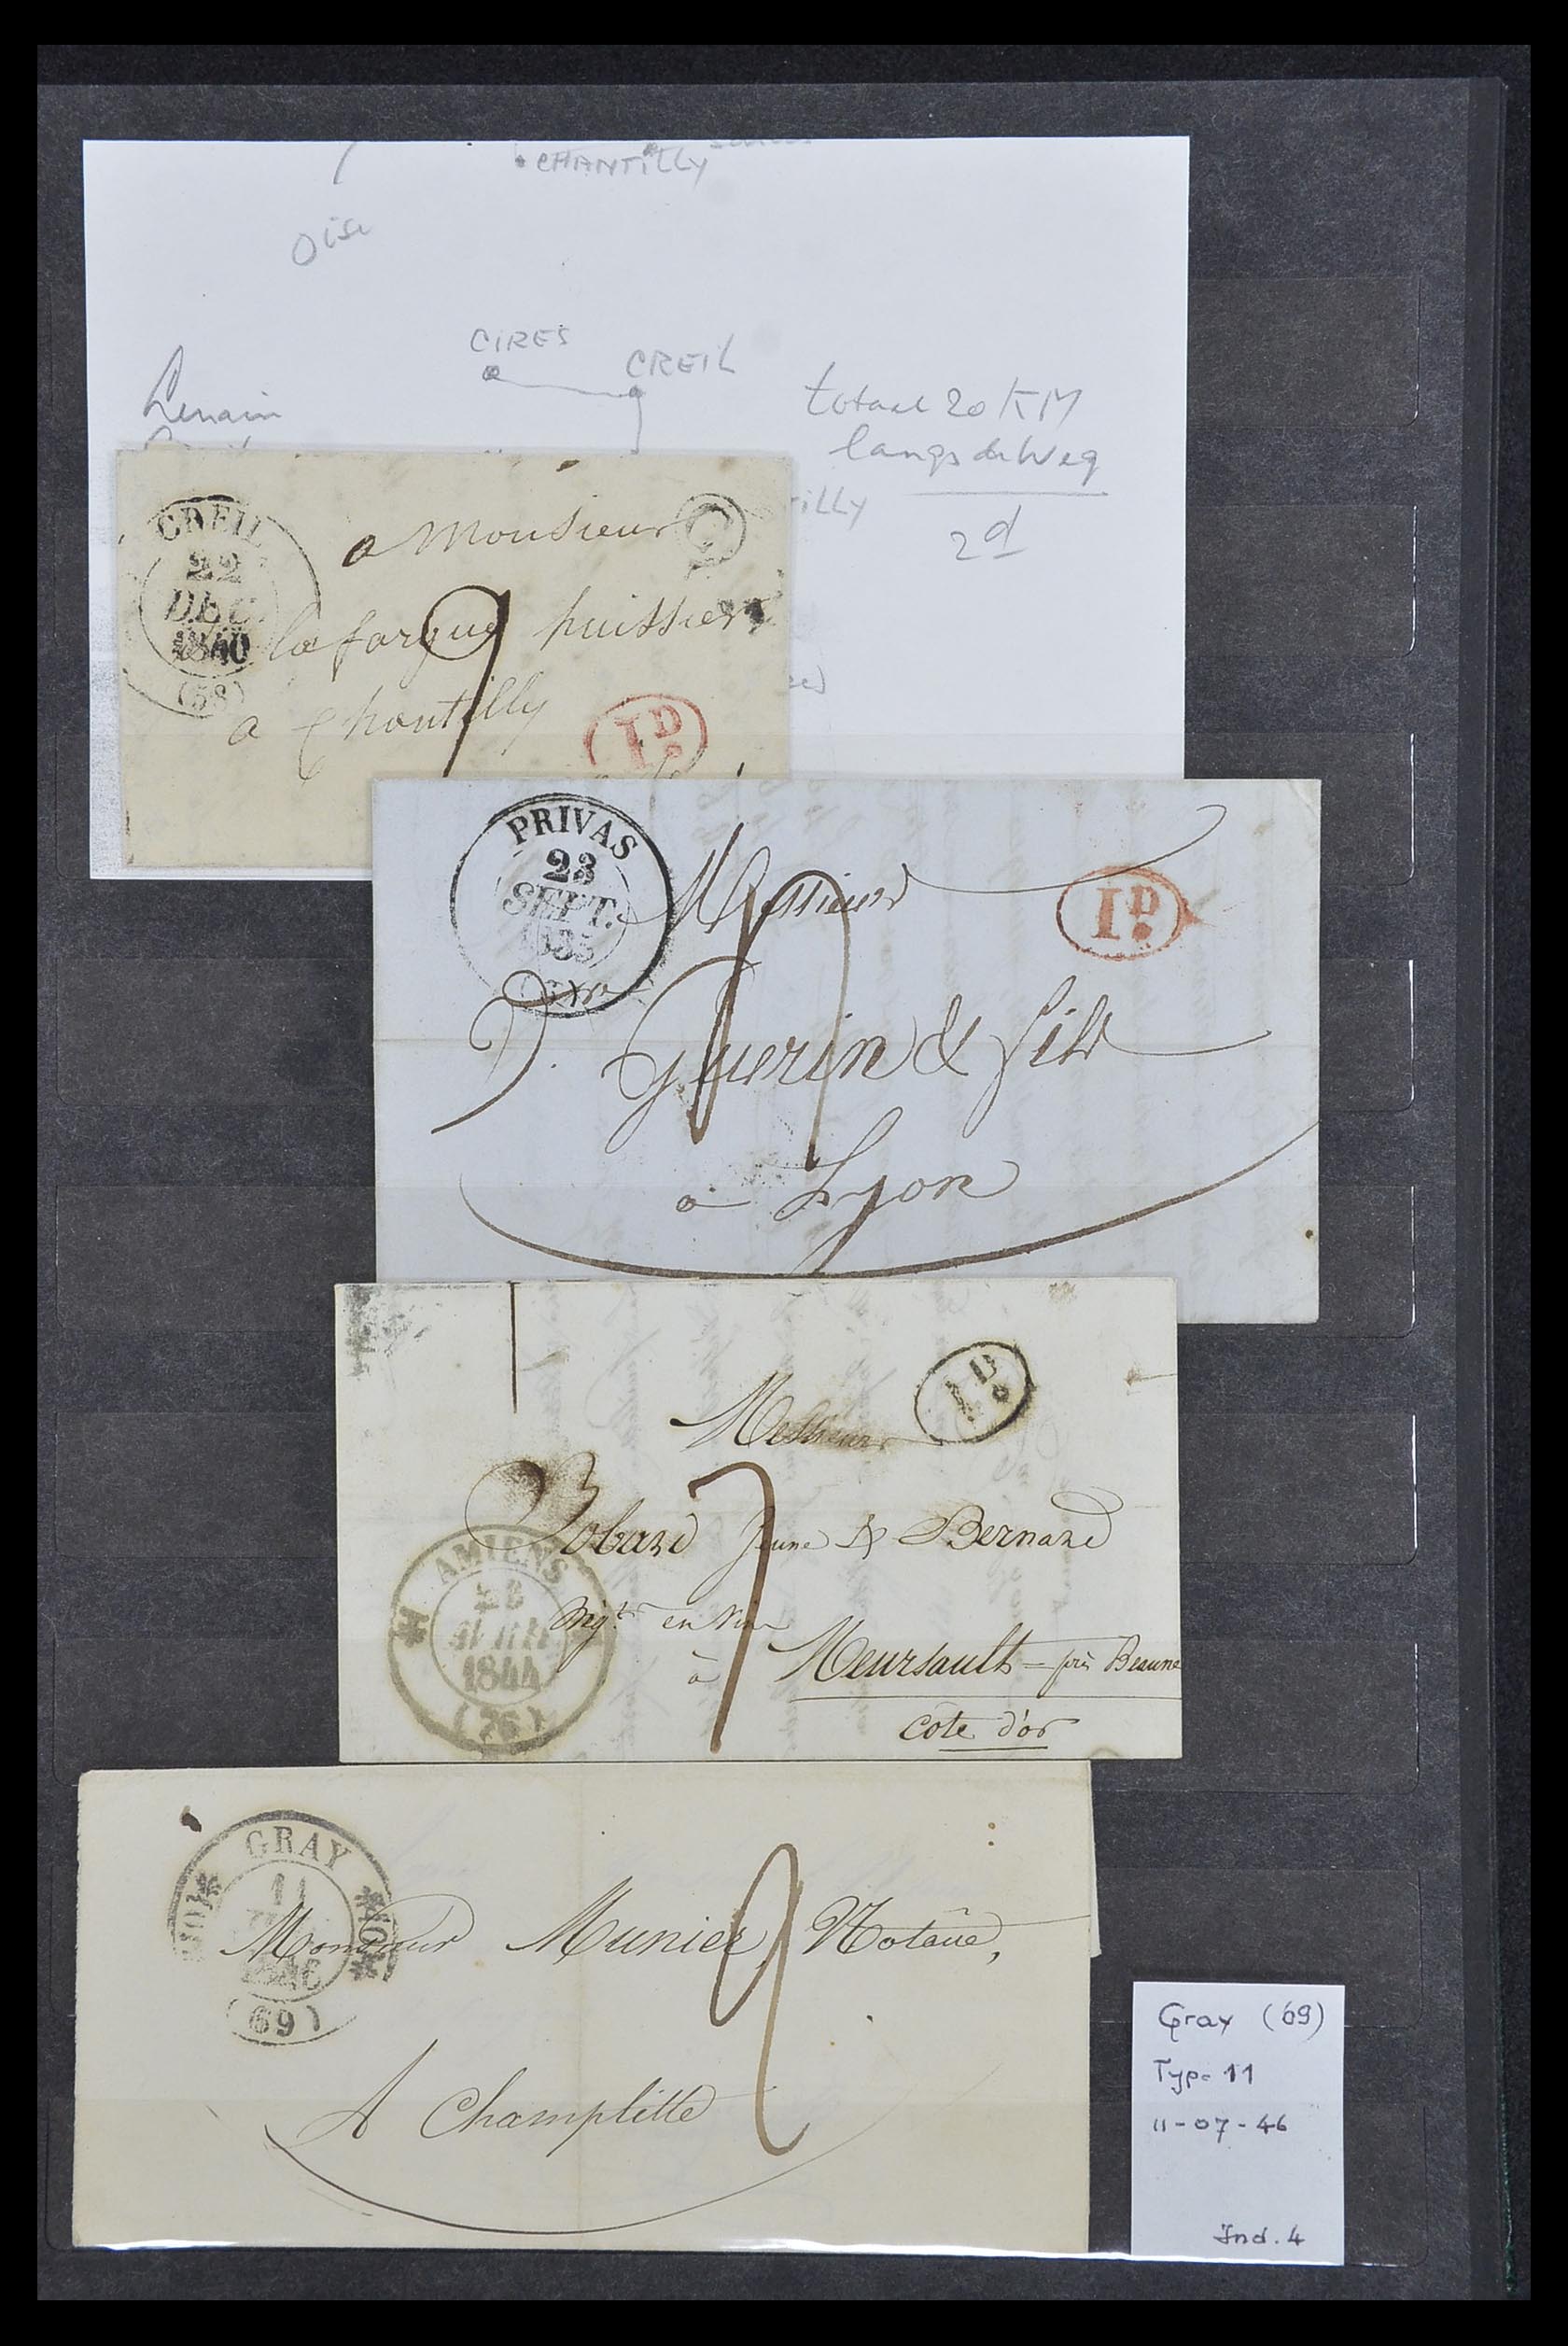 CHANTILLY
Oise
CIRES
CREIL
Lenain
totaal 20 KM
langs de weg
2d
tilly
CREIL
22
DEC.
1840
(58)
a Monsieur
C
lafargue huissier
a Chantilly
1D.
PRIVAS
23
SEPT.
1835
(6)
Messieurs
1D.
D. Guerin & fils
à Lyon
Messieurs
1D.
Bobard Jeune & Bernard
AMIENS
1844
(76)
Mgts en Vin
à Meursault - près Beaune
Côte d'or
GRAY
11
(69)
Monsieur Munier, Notaire,
A Champlitte
Gray (69)
Type 11
11-07-46
Ind. 4